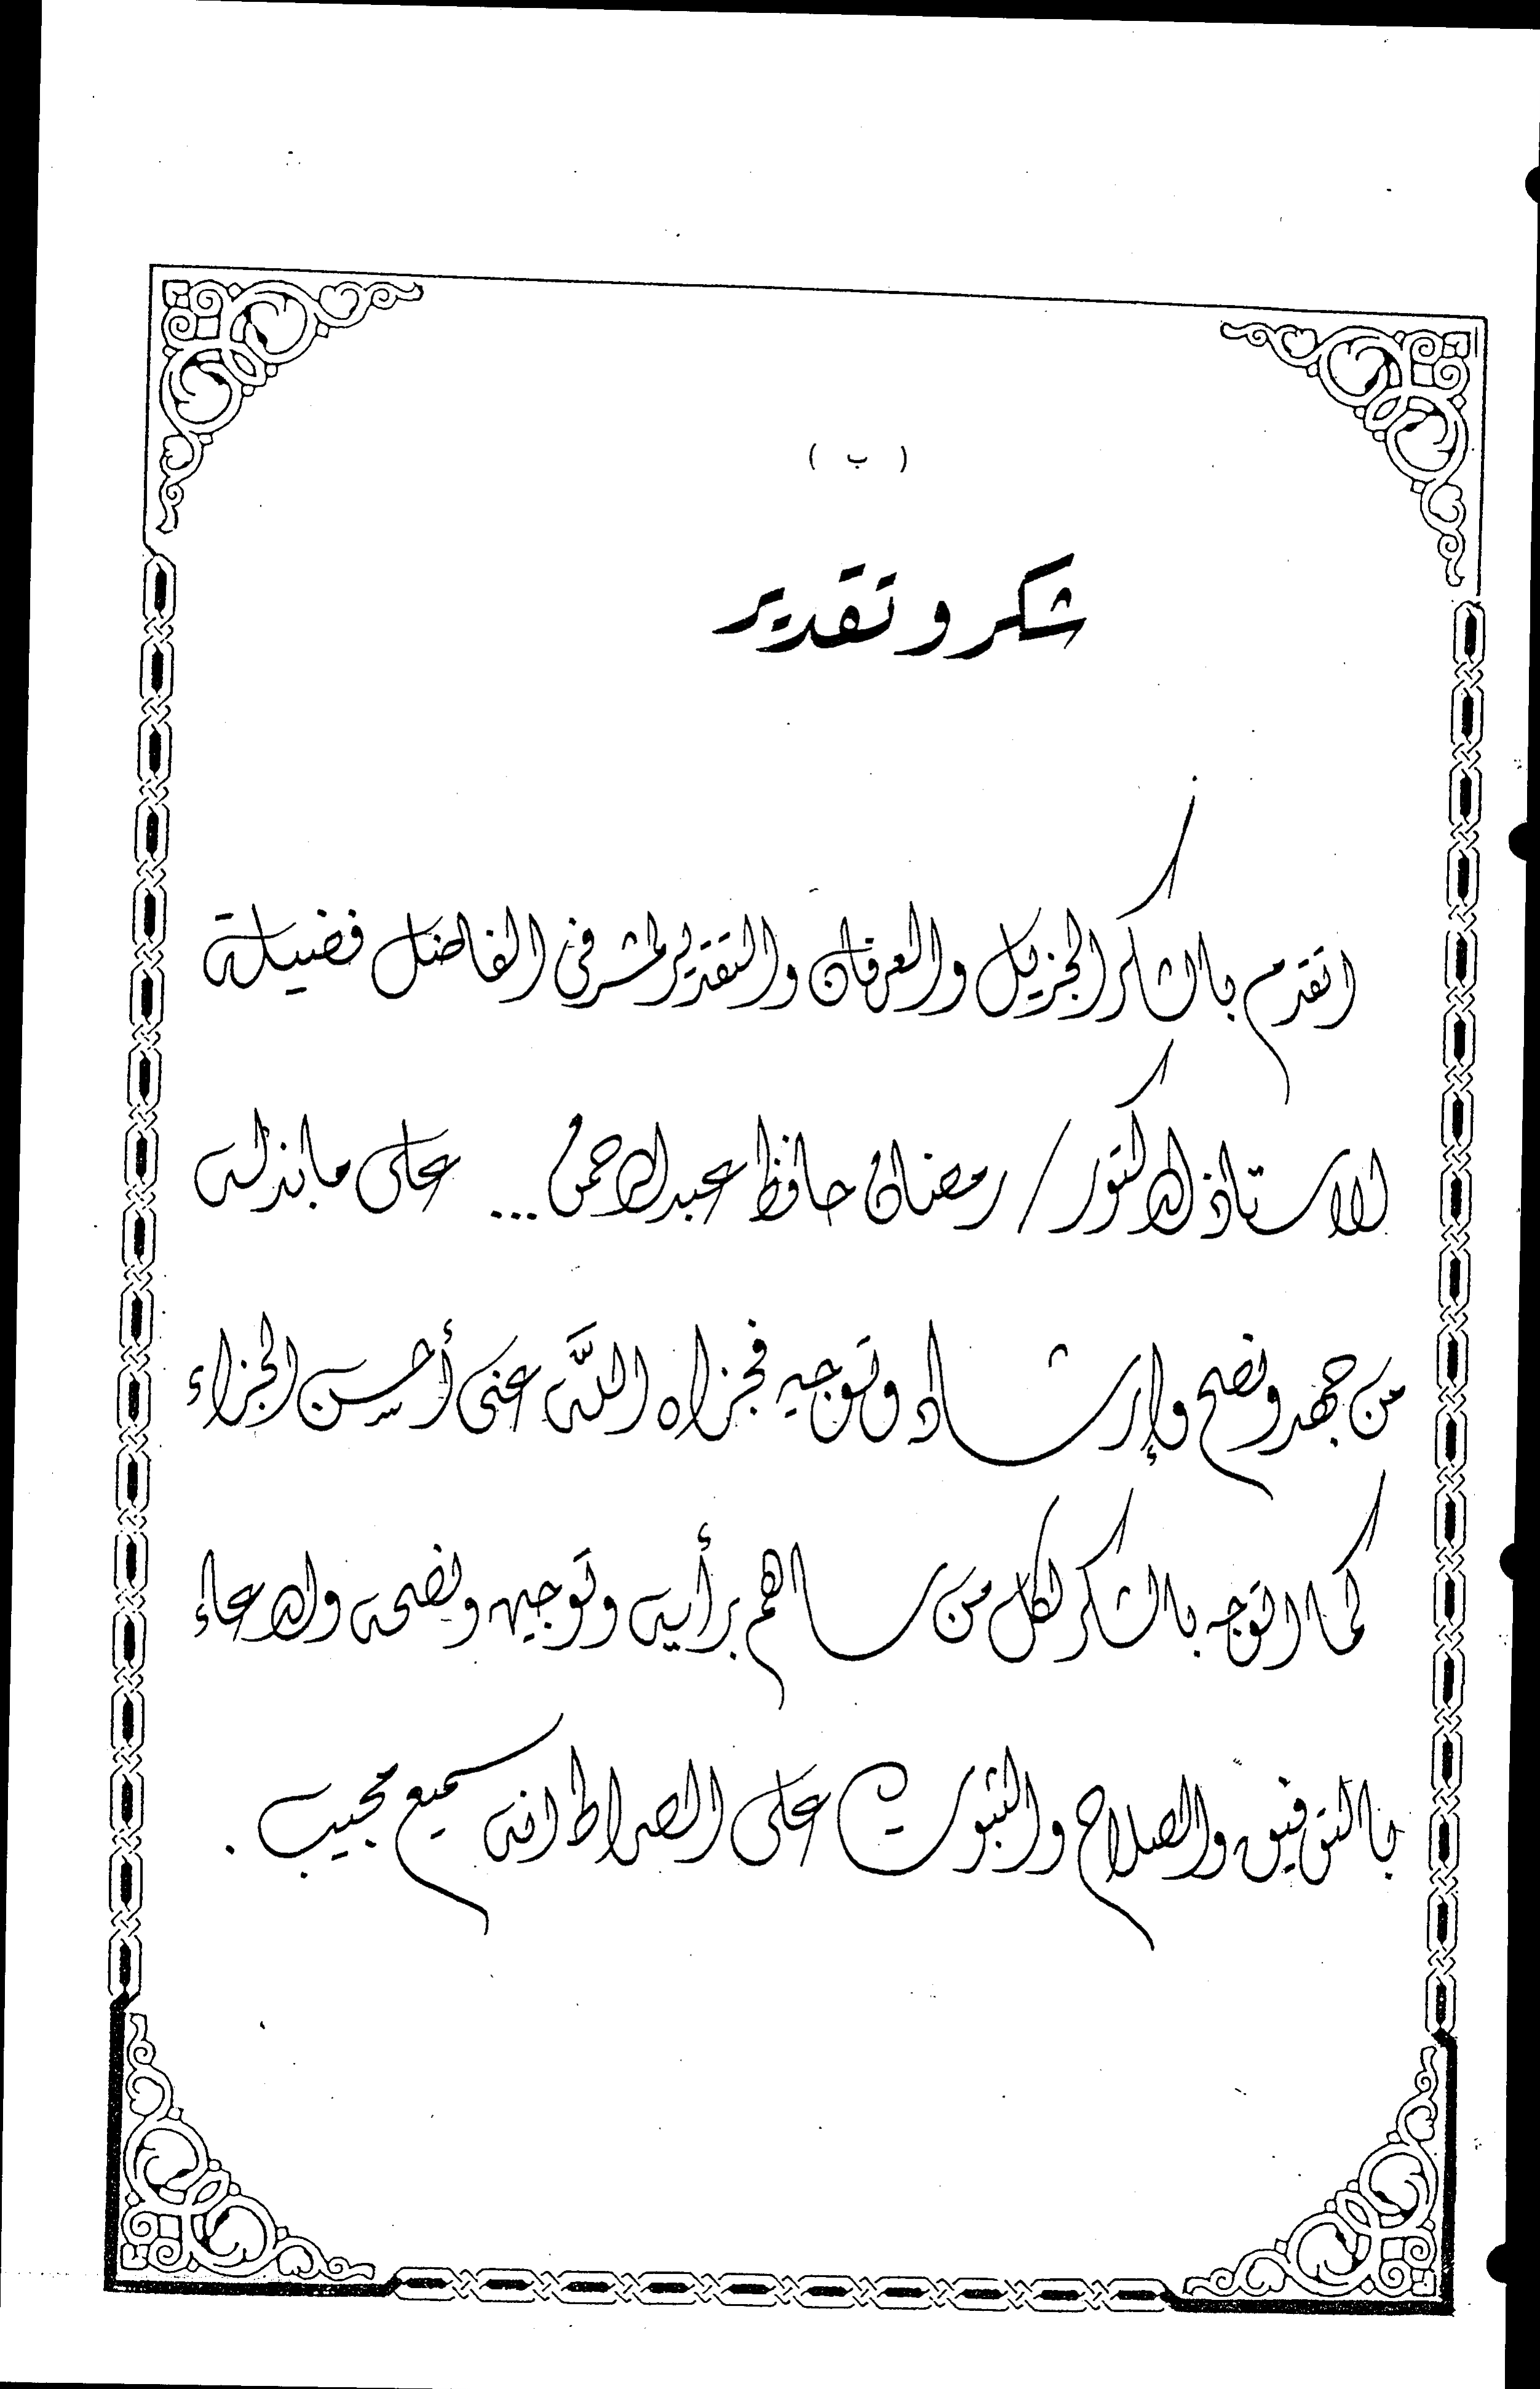 ( ب )
شكر و تقدير
اتقدم بالشكر الجزيل والعرفان والتقدير لمشرفى الفاضل فضيلة
الاستاذ الدكتور / رمضان حافظ عبدالرحمن ... على مابذله
من جهد ونصح وإرشاد وتوجيه فجزاه اللّه عنى أحسن الجزاء
كما اتوجه بالشكر لكل من ساهم برأيه وتوجيه ونصحه والدعاء
بالتوفيق والصلاح والثبوت على الصراط انه سميع مجيب .